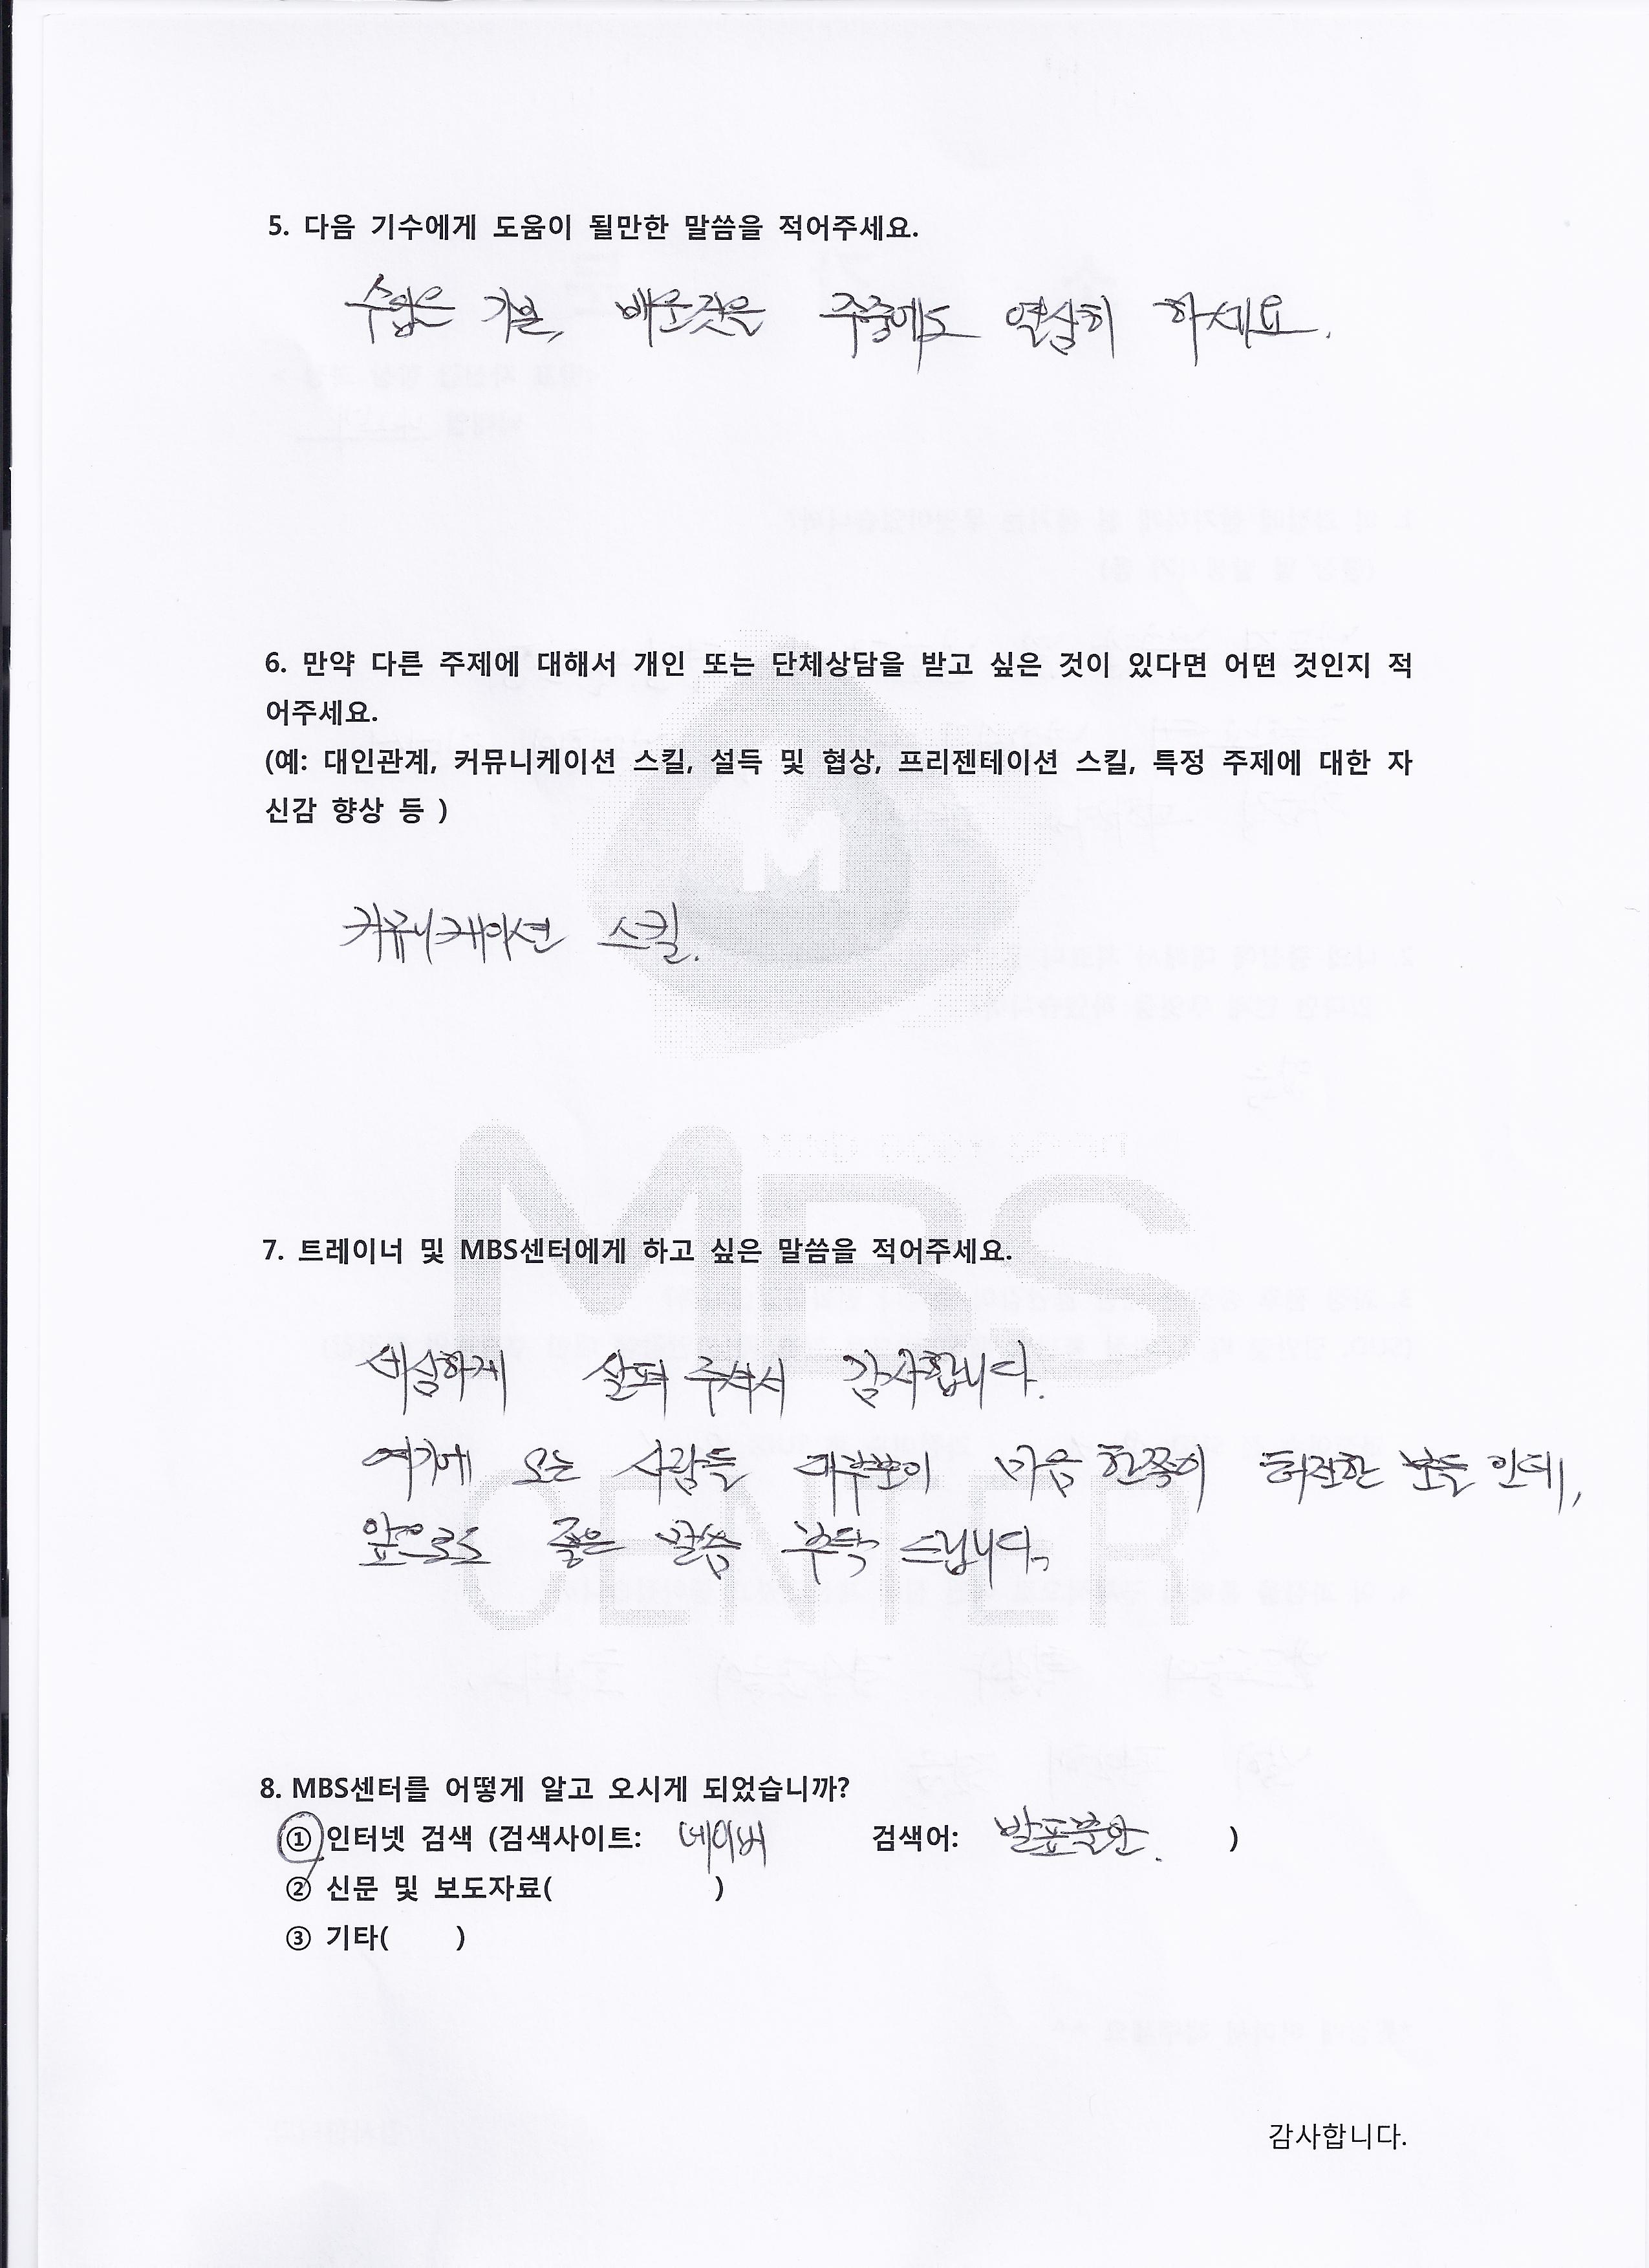 5. 다음 기수에게 도움이 될만한 말씀을 적어주세요.
수업은 기본, 배운것을 주중에도 열심히 하세요.
6. 만약 다른 주제에 대해서 개인 또는 단체상담을 받고 싶은 것이 있다면 어떤 것인지 적
어주세요.
(예: 대인관계, 커뮤니케이션 스킬, 설득 및 협상, 프리젠테이션 스킬, 특정 주제에 대한 자
신감 향상 등 )
M
커뮤니케이션 스킬.
MBS
7. 트레이너 및 MBS센터에게 하고 싶은 말씀을 적어주세요.
세심하게 살펴 주셔서 감사합니다.
여기에 오는 사람들 대부분이 마음 한쪽이 허전한 분들 인데,
CENTER
앞으로도 좋은 말씀 부탁 드립니다.
8. MBS센터를 어떻게 알고 오시게 되었습니까?
① 인터넷 검색 (검색사이트: 네이버 검색어: 발표불안. )
② 신문 및 보도자료( )
③ 기타( )
감사합니다.